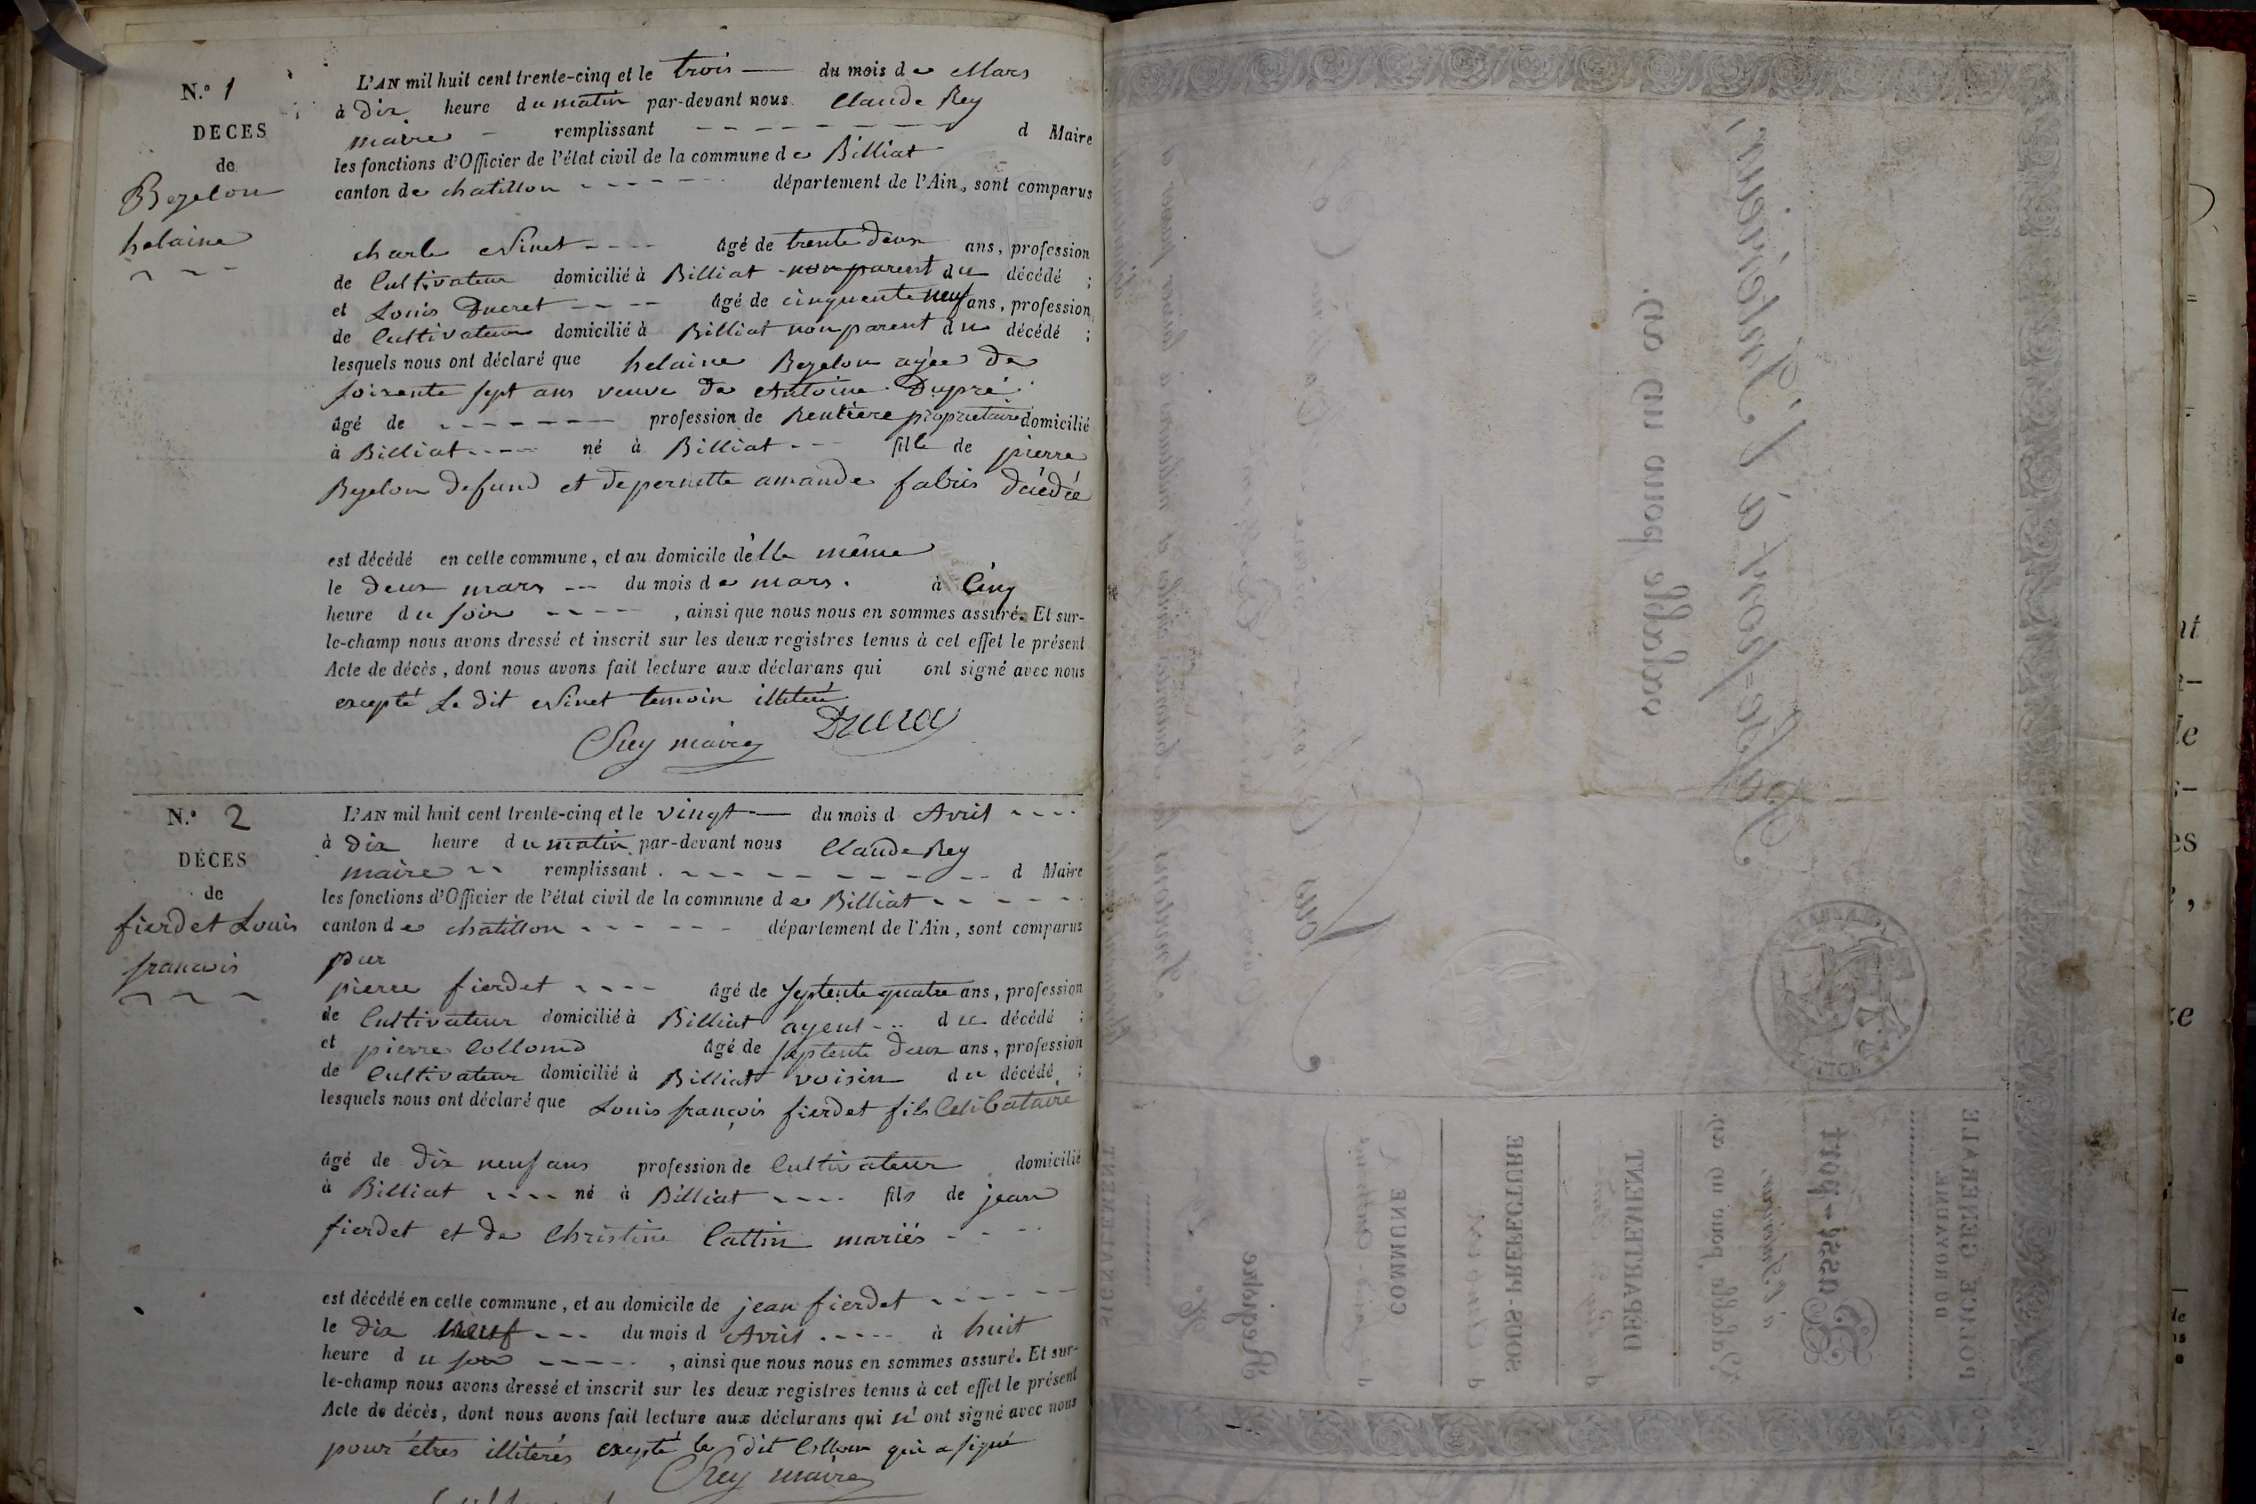 N.° 1
DECES
de
Bezelon
helaine
L'AN mil huit cent trente-cinq et le trois du mois de Mars
à dix heure du matin par-devant nous Claude Rey
maire remplissant d Maire
les fonctions d'Officier de l'état civil de la commune de Billiat
canton de chatillon département de l'Ain, sont comparus
charle Ninet âgé de trente deux ans, profession
de Cultivateur domicilié à Billiat non parent du décédé ;
et Louis Ducret âgé de cinquente neuf ans, profession
de Cultivateur domicilié à Billiat non parent du décédé ;
lesquels nous ont déclaré que helaine Bezelon agée de
soixente sept ans veuve de Antoine Dupré
âgé de profession de Rentière propriétaire domicilié
à Billiat né à Billiat fille de pierre
Bezelon defund et de pernette amande fabris décédée
est décédé en celle commune, et au domicile d'elle même
le deux mars du mois de mars. à Cinq
heure du soir , ainsi que nous nous en sommes assuré. Et sur-
le-champ nous avons dressé et inscrit sur les deux registres tenus à cet effet le présent
Acte de décès, dont nous avons fait lecture aux déclarans qui ont signé avec nous
excepté Le dit Ninet temoin illiteré
CRey maire Ducret
N.° 2
DÉCES
de
fierdet Louis
francois
L'AN mil huit cent trente-cinq et le vingt du mois d Avril
à dix heure du matin par-devant nous Claude Rey
maire remplissant d Maire
les fonctions d'Officier de l'état civil de la commune de Billiat
canton de chatillon département de l'Ain, sont comparus
pierre fierdet âgé de septente quatre ans, profession
de Cultivateur domicilié à Billiat ayeul du décédé ;
et pierre Collomb âgé de septente deux ans, profession
de Cultivateur domicilié à Billiat voisin du décédé ;
lesquels nous ont déclaré que Louis françois fierdet fils Celibataire
âgé de dix neuf ans profession de Cultivateur domicilié
à Billiat né à Billiat fils de jean
fierdet et de Christine Cattin mariés
est décédé en celle commune, et au domicile de jean fierdet
le dix neuf du mois d Avril à huit
heure du soir , ainsi que nous nous en sommes assuré. Et sur-
le-champ nous avons dressé et inscrit sur les deux registres tenus à cet effet le présent
Acte de décès, dont nous avons fait lecture aux déclarans qui n' ont signé avec nous
pour êtres illiterés excepté le dit Collomb qui a signé
CRey maire
Passe-port à l'Intérieur,
valable pour un an.
POLICE GÉNÉRALE
DU ROYAUME.
Passe-port
à l'Intérieur,
Valable pour un an.
DÉPARTEMENT
d
SOUS-PRÉFECTURE
d
COMMUNE
d
Registre
SIGNALEMENT